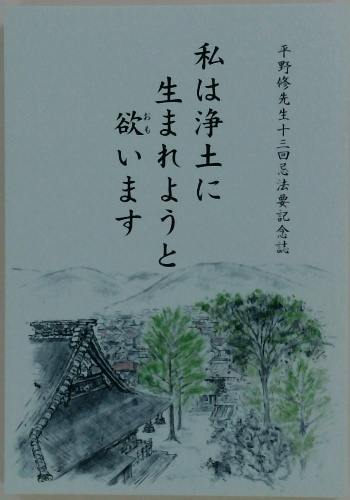 平野修先生十三回忌法要記念誌
私は浄土に
生まれようと
欲います
おも